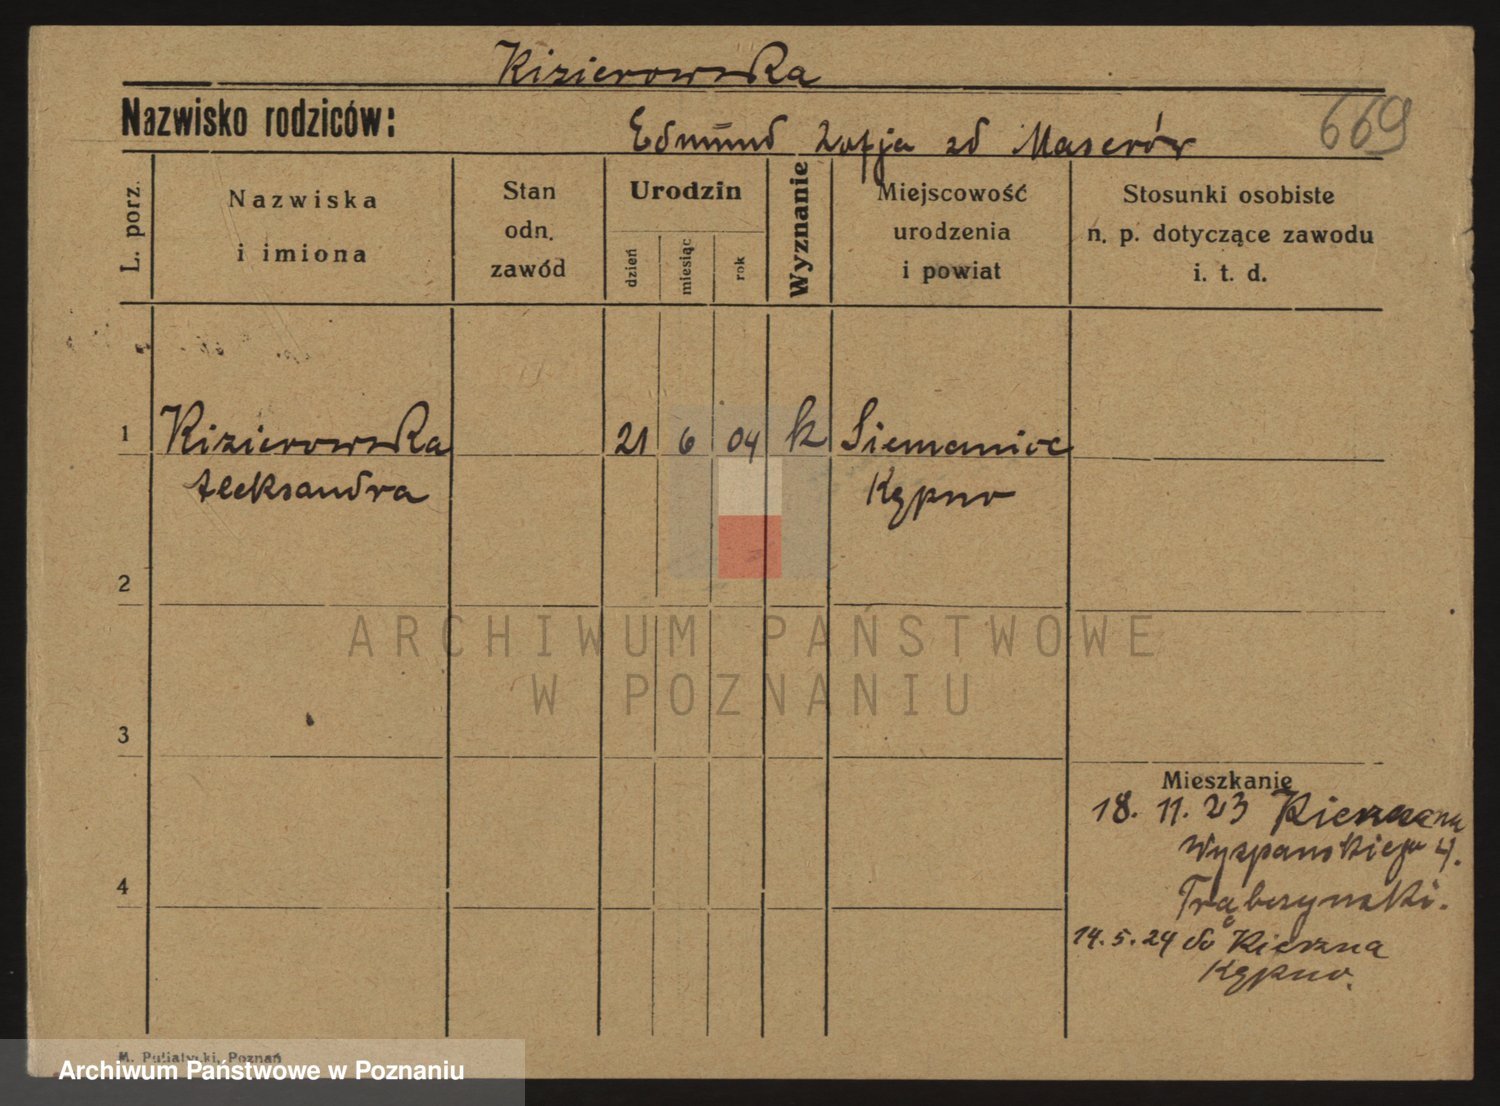 Kizierowska
Nazwisko rodziców:
Edmund Zofja zd Maserów
669
L. porz.
Nazwiska
i imiona
Stan
odn.
zawód
Urodzin
dzień
miesiąc
rok
Wyznanie
Miejscowość
urodzenia
i powiat
Stosunki osobiste
n. p. dotyczące zawodu
i. t. d.
1
Kizierowska
21
6
04
k
Siemianice
Aleksandra
Kępno
2
ARCHIWUM PAŃSTWOWE
W POZNANIU
3
Mieszkanie
18. 11. 23
Wyspańskiego 4.
4
Trąbczyński.
14. 5. 24 do Kierzna
Kępno.
M. Putiatycki, Poznań
Archiwum Państwowe w Poznaniu